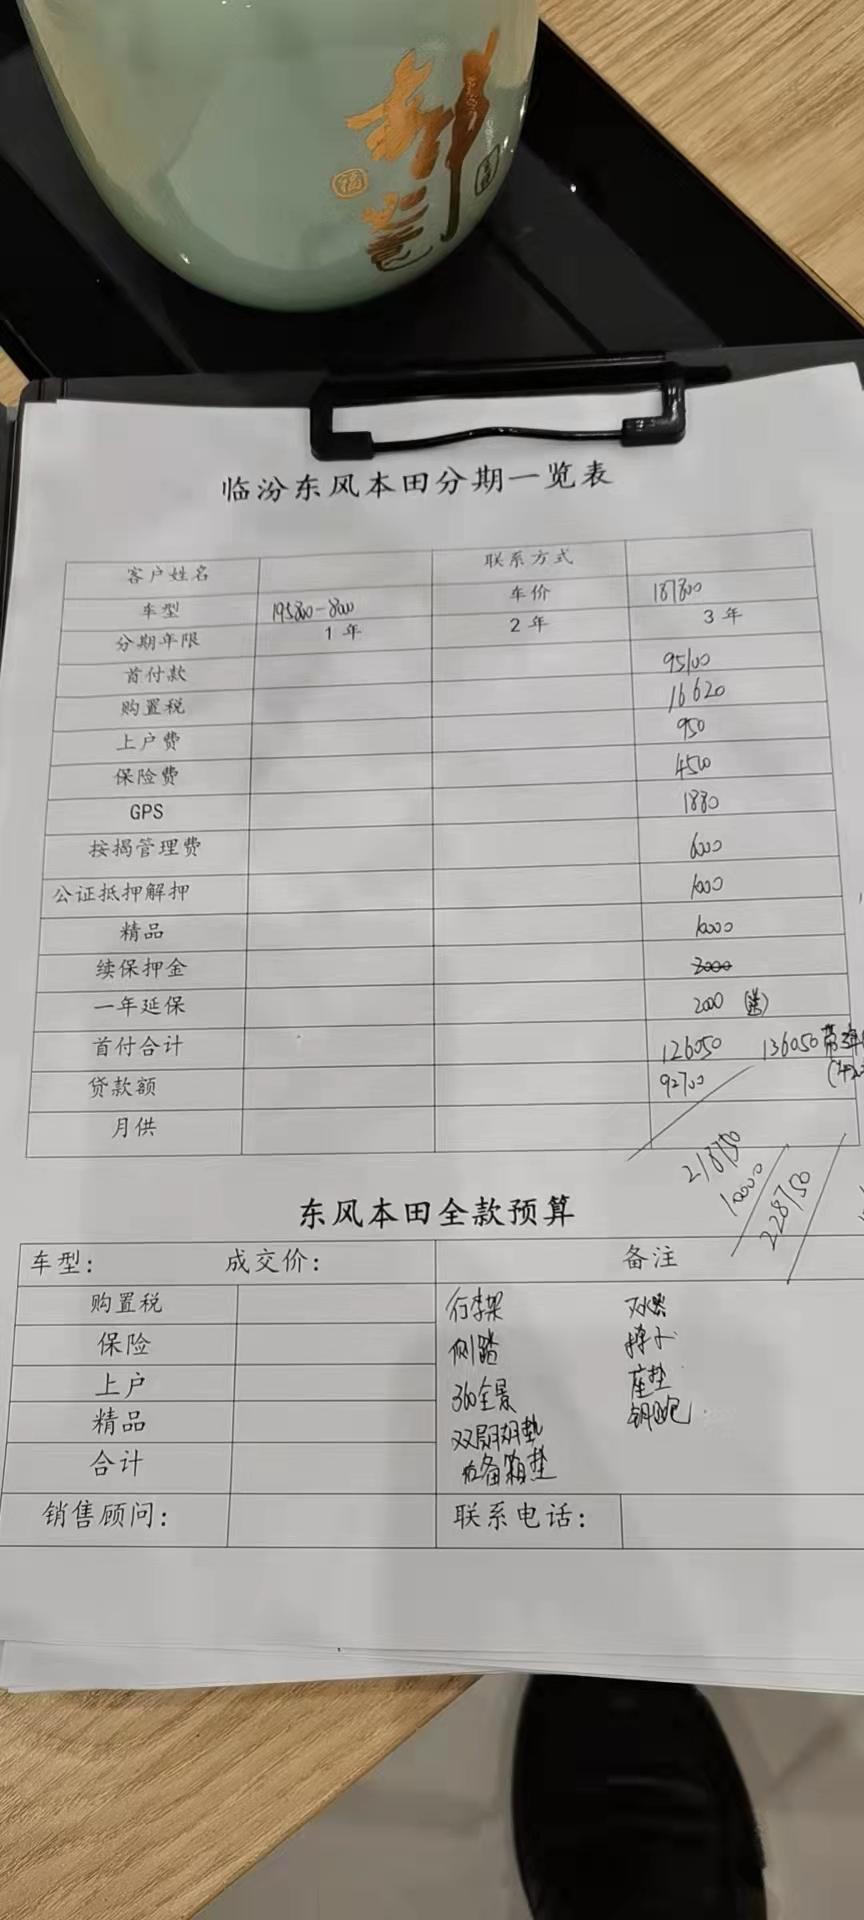 福
临汾东风本田分期一览表
客户姓名 联系方式
车型 195800-8000 车价 187800
分期年限 1 年 2 年 3 年
首付款 95100
购置税 16620
上户费 950
保险费 4500
GPS 1880
按揭管理费 6000
公证抵押解押 1000
精品 10000
续保押金 3000
一年延保 2000 (送)
首付合计 126050 136050带
贷款额 92700
月供
218750
10000
228750
东风本田全款预算
车型: 成交价: 备注
购置税 行李架
保险 侧踏
上户 360全景 座垫
精品 双层脚垫
合计 后备箱垫
销售顾问: 联系电话: